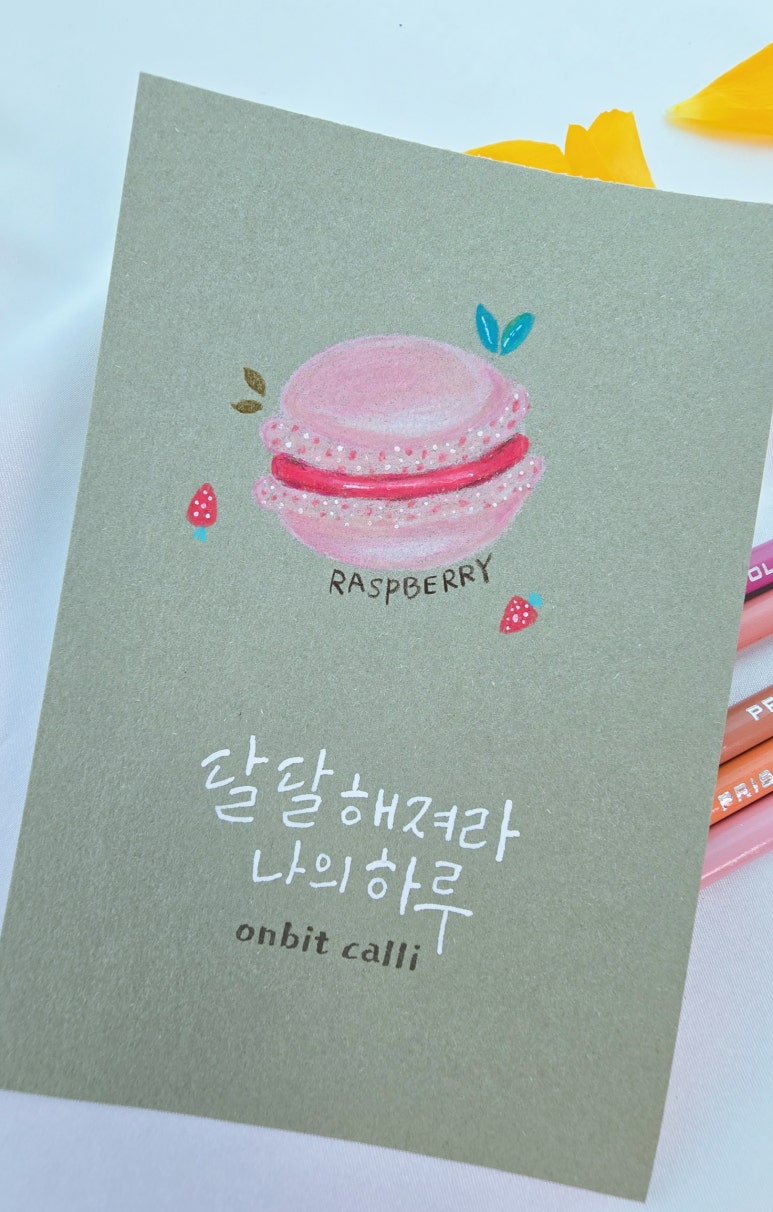 RASPBERRY
달달해져라
나의하루
onbit calli